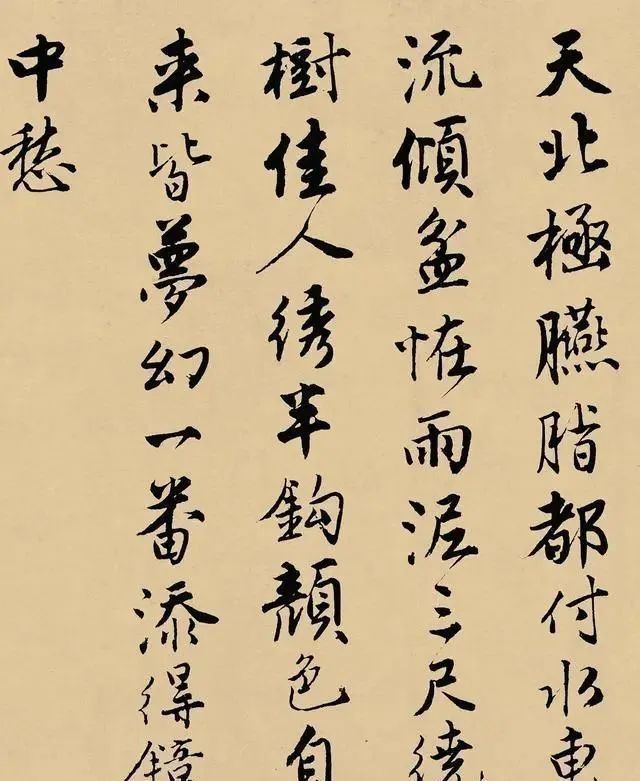 天北極臙脂都付水東
流傾盆恠雨泥三尺繞
樹佳人綉半鈎顔色自
来皆夢幻一番添得鏡
中愁